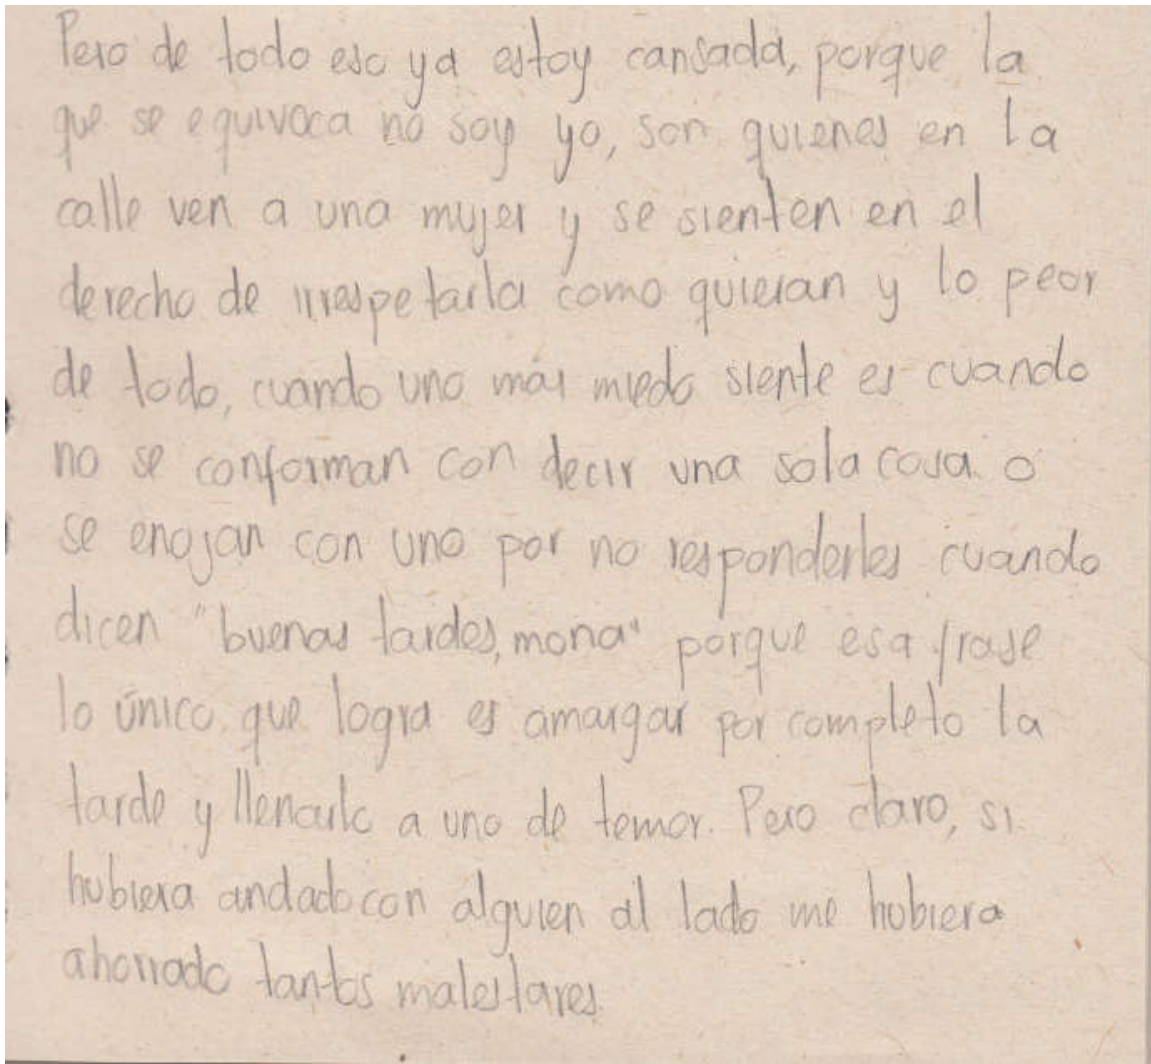 Pero de todo eso ya estoy cansada, porque la
que se equivoca no soy yo, son quienes en la
calle ven a una mujer y se sienten en el
derecho de irrespetarla como quieran y lo peor
de todo, cuando uno más miedo siente es cuando
no se conforman con decir una sola cosa o
se enojan con uno por no responderles cuando
dicen "buenas tardes, mona" porque esa frase
lo único que logra es amargar por completo la
tarde y llenarlo a uno de temor. Pero claro, si
hubiera andado con alguien al lado me hubiera
ahorrado tantos malestares.